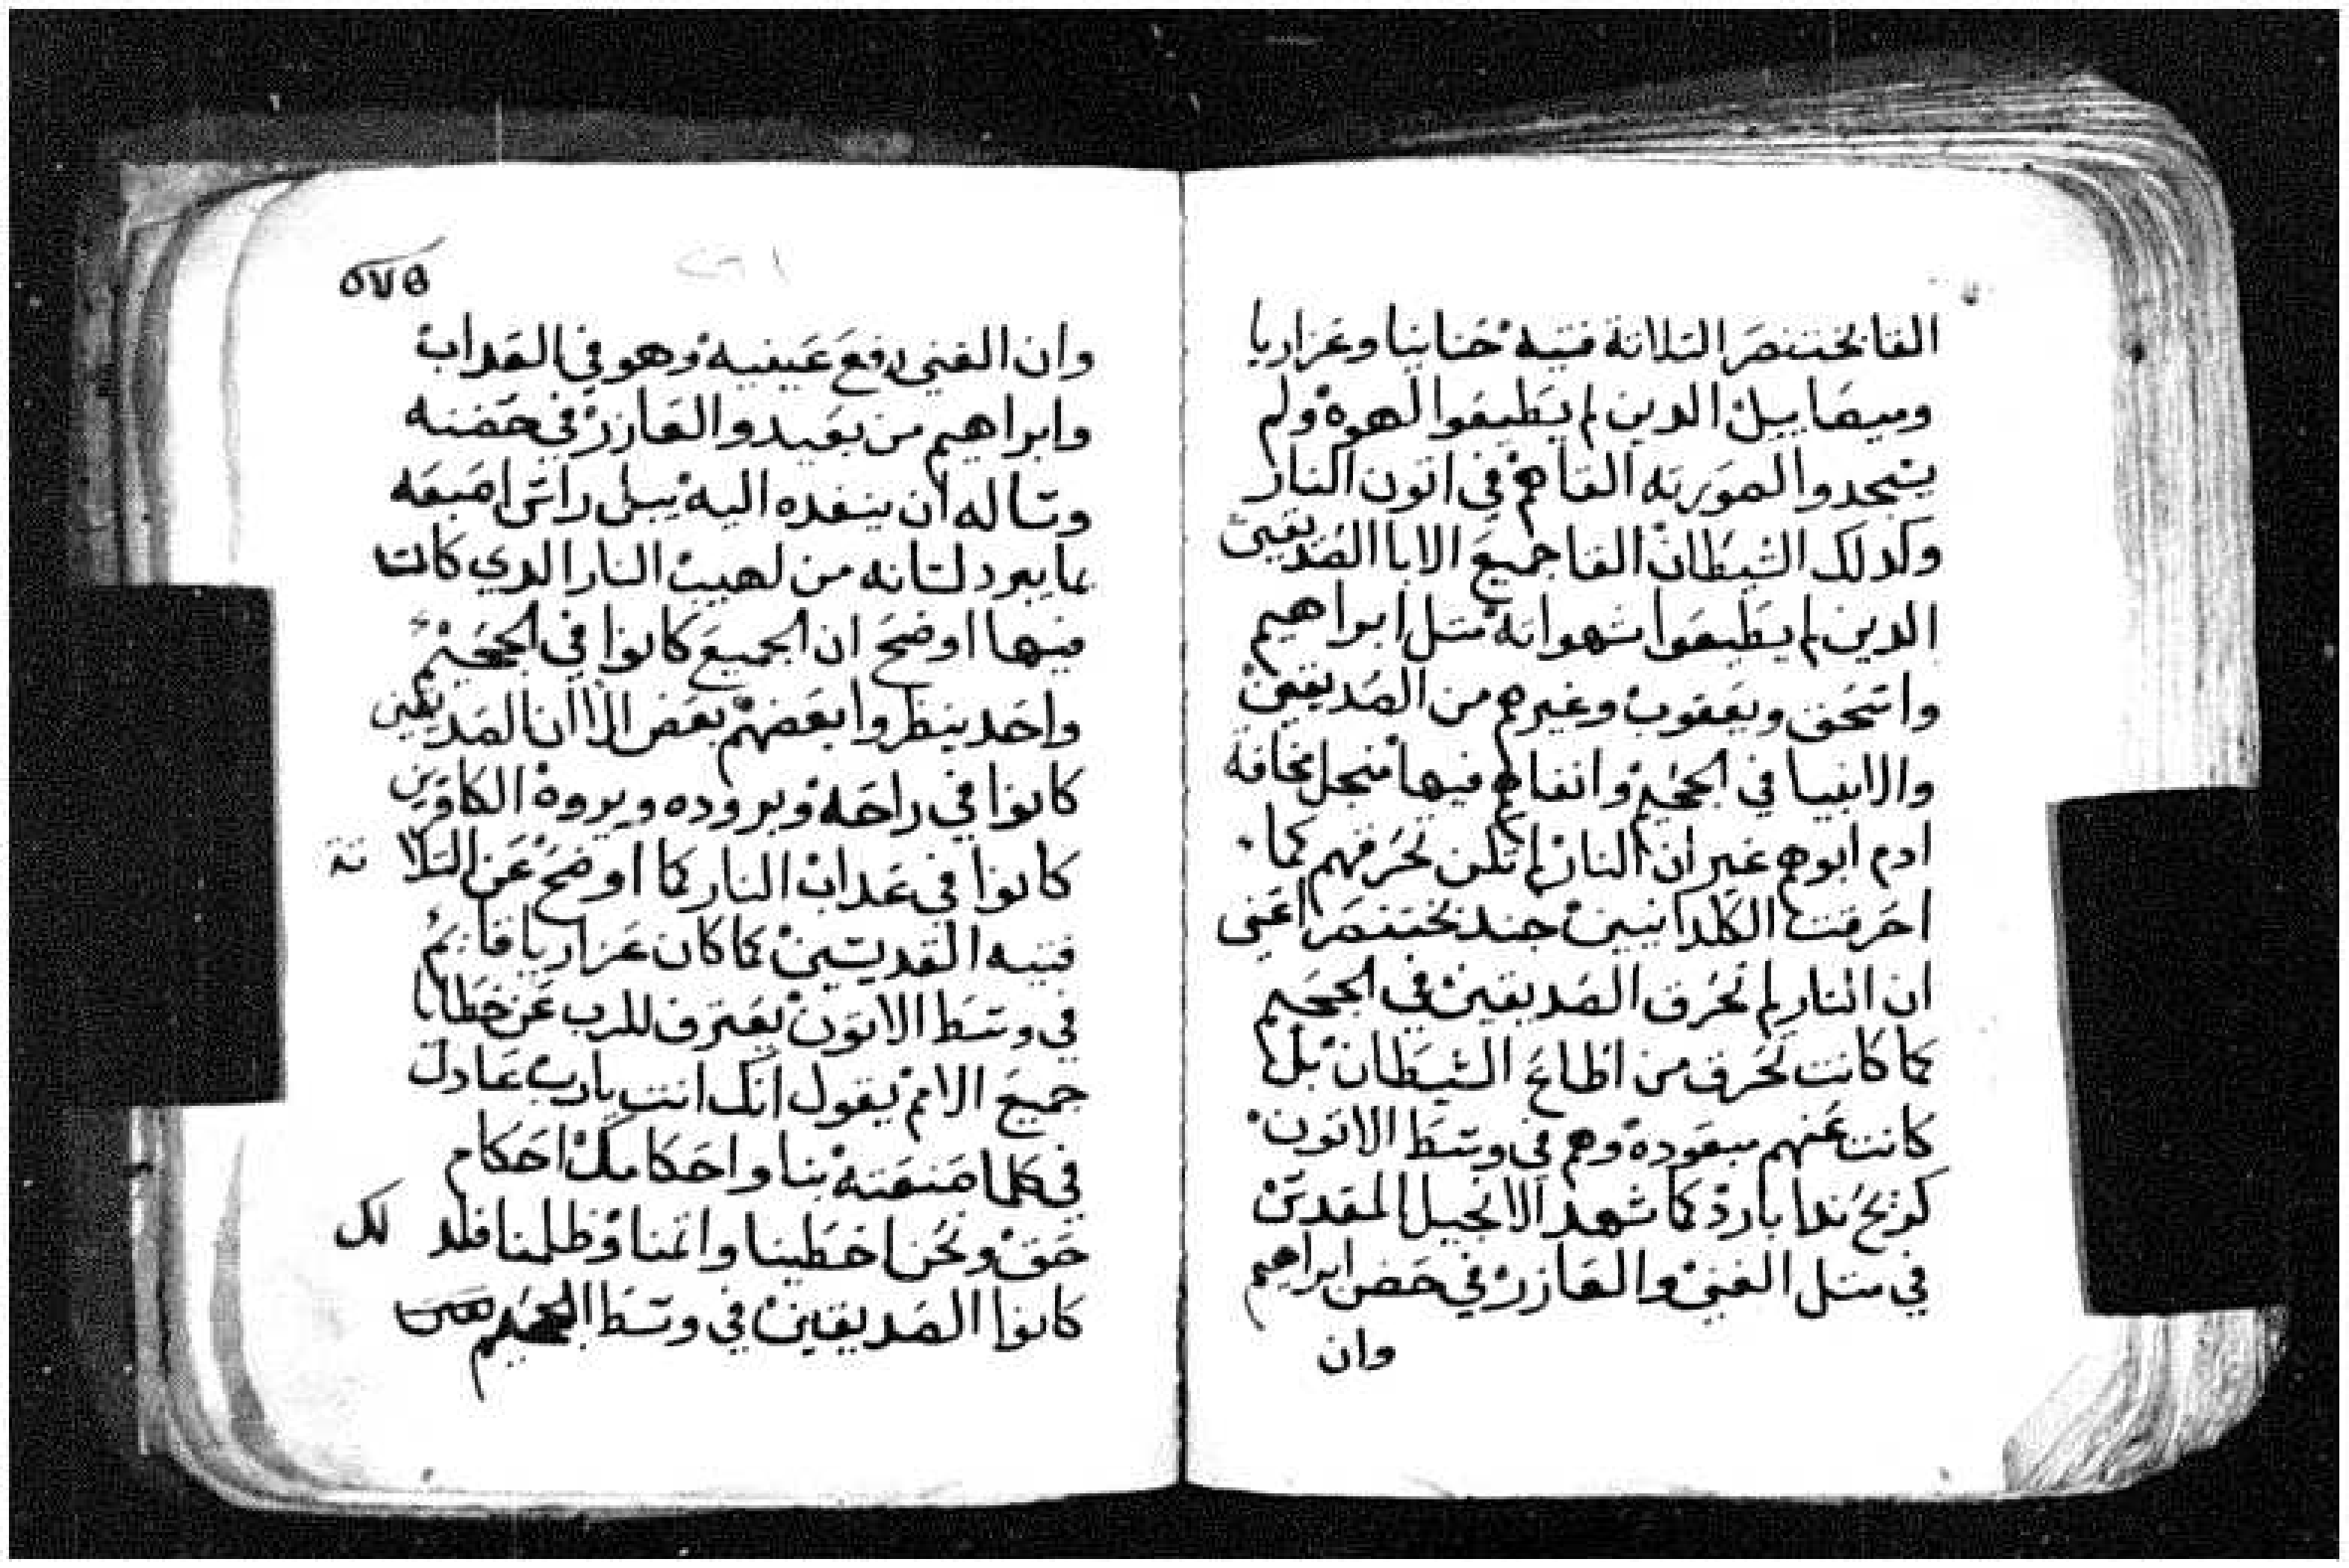 القا بختنصر التلاتة فتيه حنانيا وعزاريا
وميصاييل الدين لم يطيعوا لهوه ولم
يتجدوا لصورته القاهم في اتون النار
وكدلك الشيطان القا جميع الابا الصديقين
الدين لم يطيعوا شهواته متل ابراهيم
واتحق ويعقوب وغيرهم من الصديقين
والانبيا في الجحيم وانفاهم فيها منجل مخافة
ادم ابوهم غير ان النار لم تكن تحرقهم كما
احرقت الكلدانيين جند بختنصر اعني
ان النار لم تحرق الصديقين في الجحيم
كما كانت تحرق من اطاع الشيطان بل
كانت عنهم مبعوده وهم في وتط الاتون
كريح ندا بارد كما شهد الانجيل المقدس
في متل الغني والعازر في حضن ابراهيم
وان
وان الغني رفع عينيه وهو في العداب
وابراهيم من بعيد والعازر في حضنه
وتاله ان ينفده اليه يبل راتى اصبعه
بما يبرد لتانه من لهيب النار الدي كانت
فيها اوضح ان الجميع كانوا في الجحيم
واحد ينظروا بعضهم بعض الا ان الصديقين
كانوا في راحه وبروده ويروه الكافرين
كانوا في عداب النار كما اوضح عن التلاتة
فتيه القديتين كما كان عزاريا قايم
في وتط الاتون يعترف للرب عن خطايا
جميع الامم يقول انك انت يارب عادل
في كلما صنعته بنا واحكامك احكام
حق ونحن اخطينا واتمنا وظلمنا فلدلك
كانوا الصديقين في وتط الجحيم